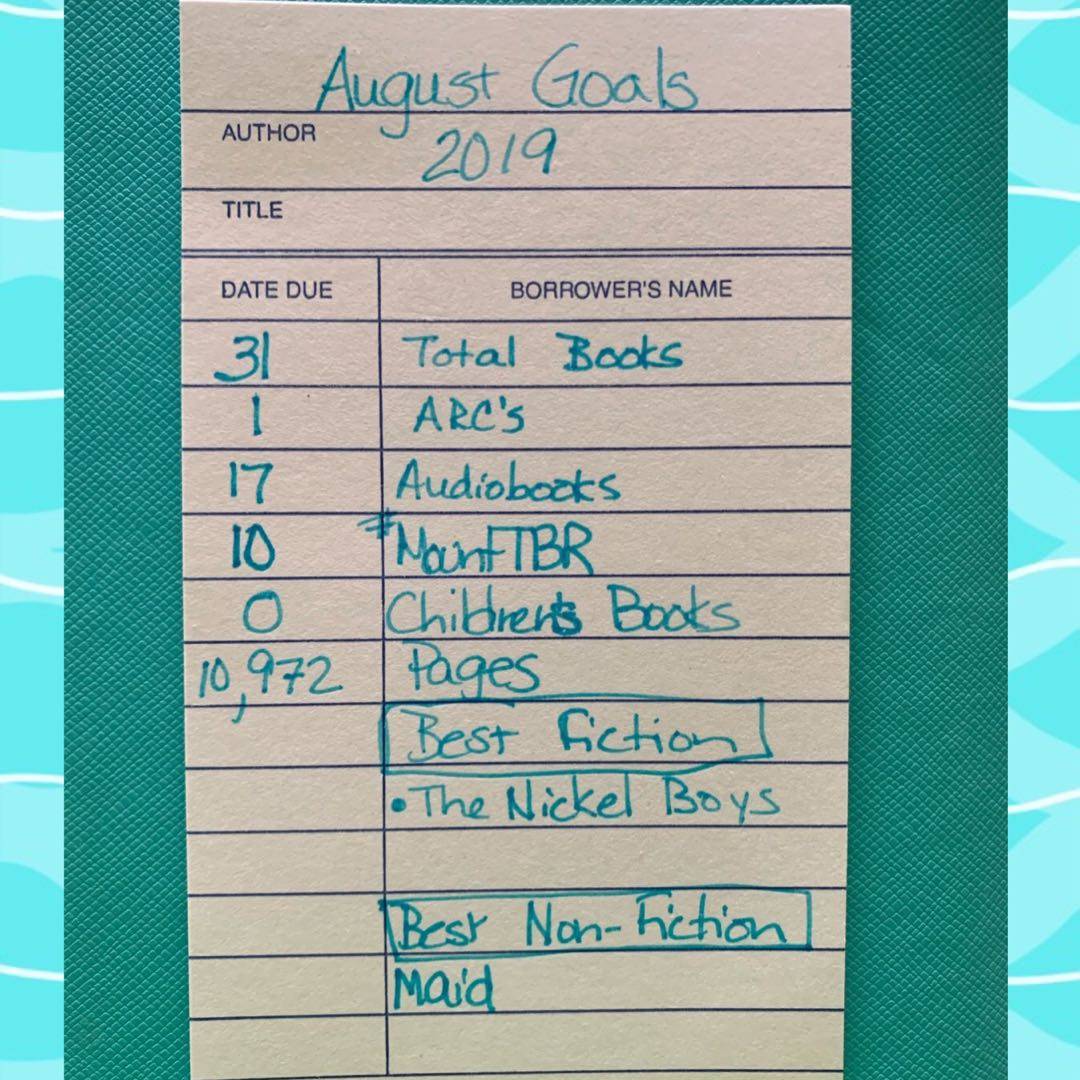 August Goals
AUTHOR
2019
TITLE
DATE DUE BORROWER'S NAME
31 Total Books
1 ARC's
17 Audiobooks
10 #MountTBR
0 Children's Books
10,972 Pages
Best Fiction
• The Nickel Boys
Best Non-Fiction
Maid